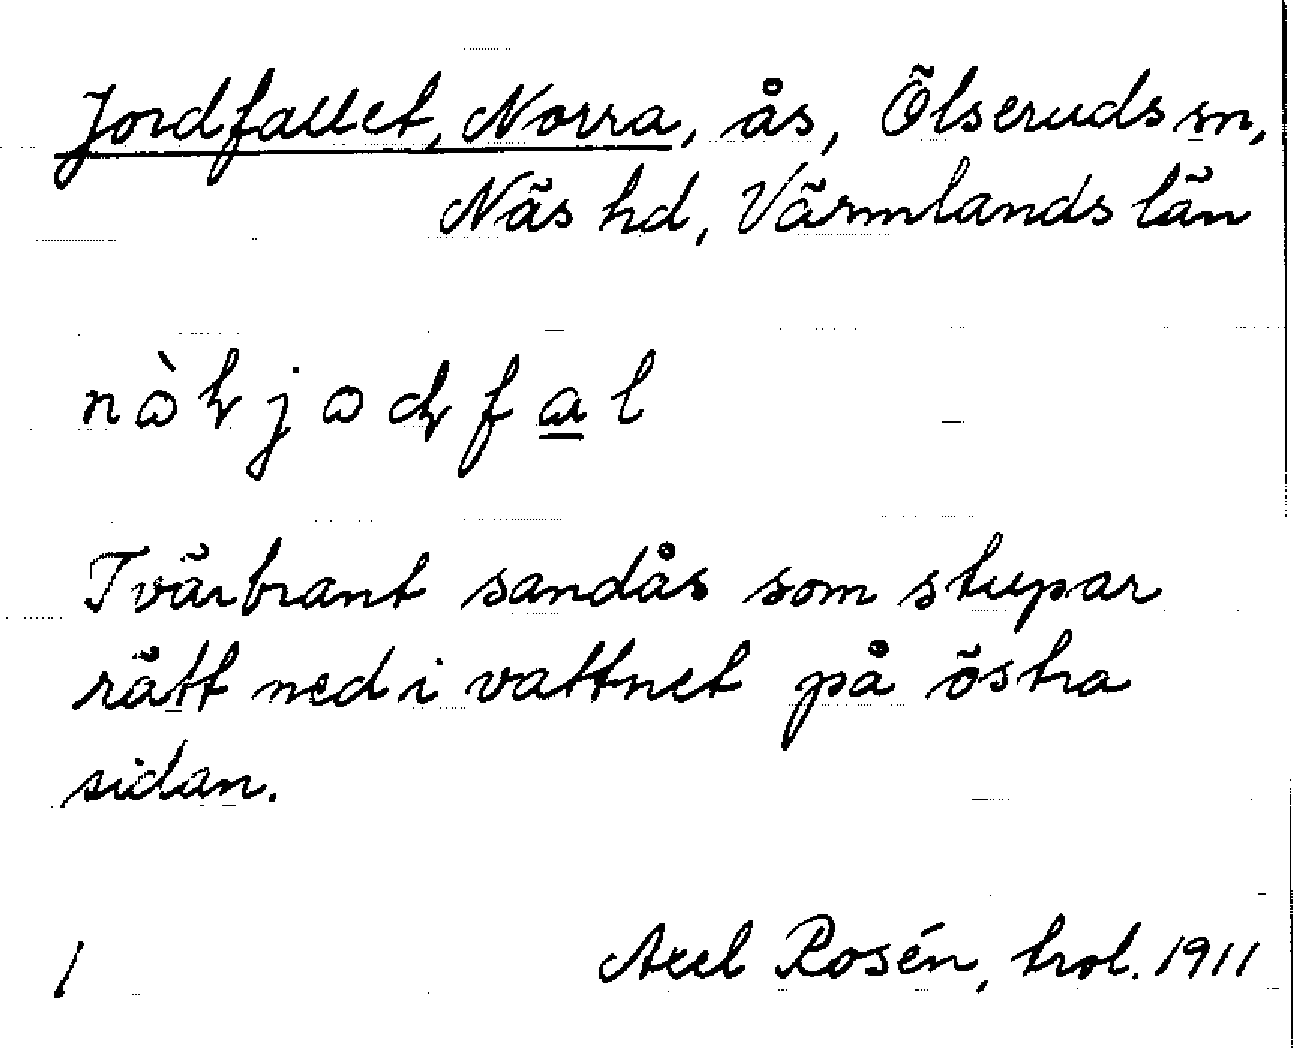 Jordfallet, Norra, ås, Ölseruds sn,
Näs hd, Värmlands län
Tvärbrant sandås som stupar
rätt ned i vattnet på östra
sidan.
/ Axel Rosén, trol. 1911